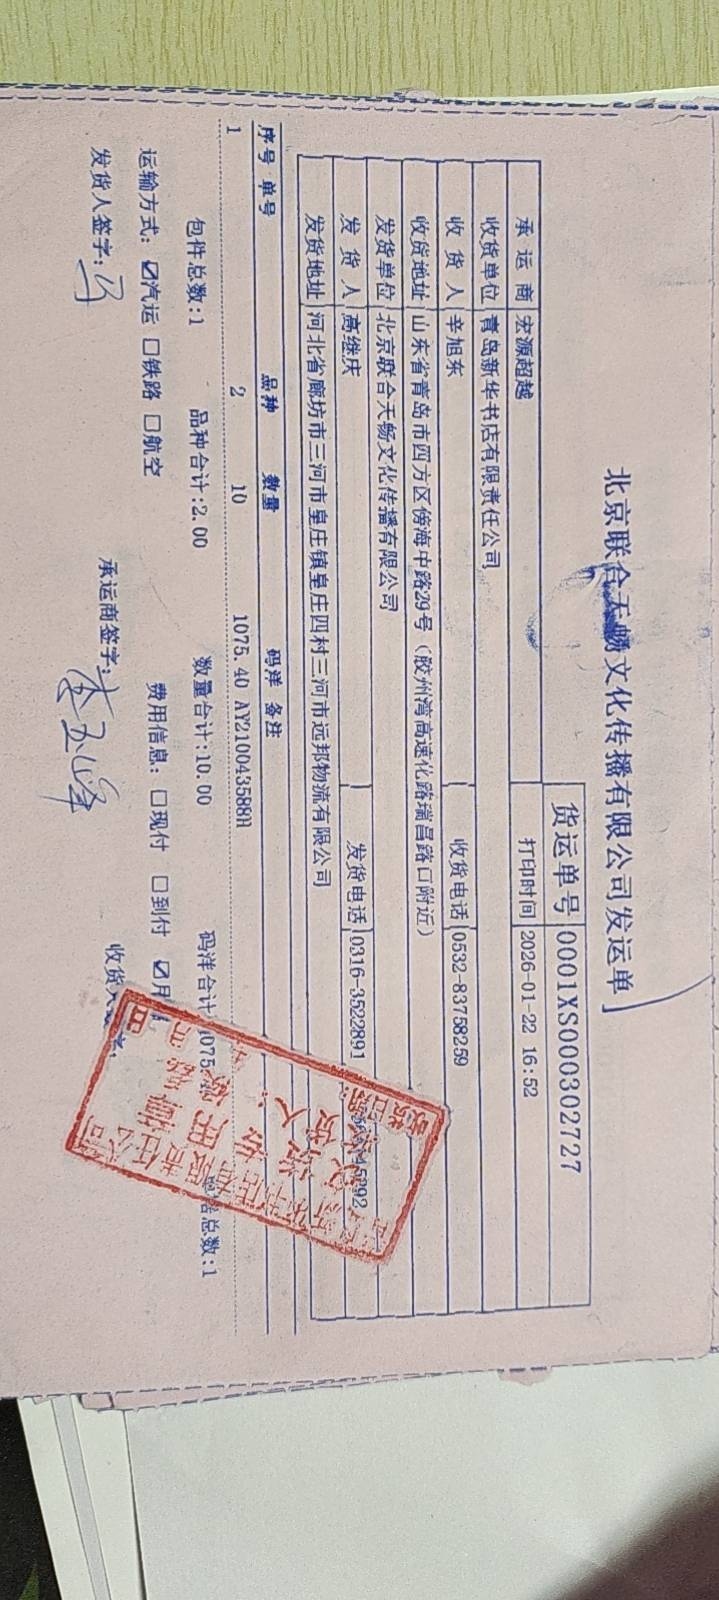 北京联合天畅文化传播有限公司发运单
货运单号 0001XS000302727
承 运 商 宏源超越 打印时间 2026-01-22 16:52
收货单位 青岛新华书店有限责任公司
收 货 人 辛旭东 收货电话 0532-83758259
收货地址 山东省青岛市四方区傍海中路29号（胶州湾高速化路瑞昌路口附近）
发货单位 北京联合天畅文化传播有限公司
发 货 人 高继庆 发货电话 0316-3522891
发货地址 河北省廊坊市三河市皇庄镇皇庄四村三河市远邦物流有限公司
序号 单号 品种 数量 码洋 备注
1 2 10 1075.40 AY210043588H
包件总数:1 品种合计:2.00 数量合计:10.00 码洋合计 总数:1
运输方式: ☑汽运 □铁路 □航空 费用信息: □现付 □到付 ☑月
发货人签字: 承运商签字: 收货人
收货日期:
收货人:
收货专用章